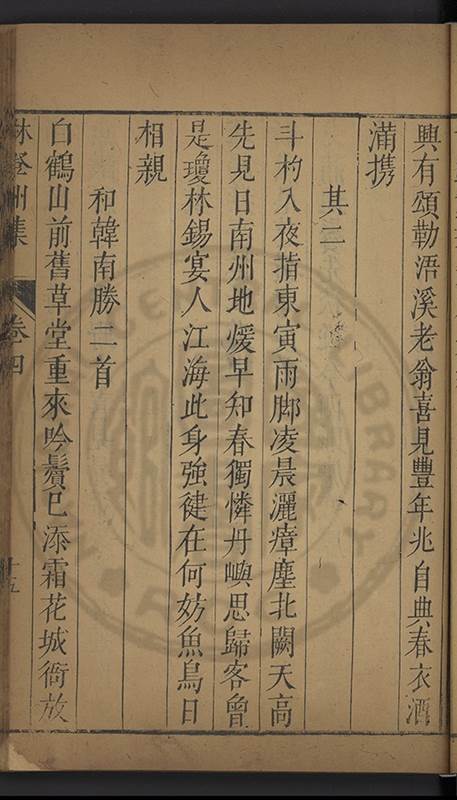 興有頌勒浯溪老翁喜見豐年兆自典春衣酒
滿携
其二
斗杓入夜指東寅雨脚凌晨灑瘴塵北闕天高
先見日南州地煖早知春獨憐丹嶼思歸客曾
是瓊林錫宴人江海此身強健在何妨魚鳥日
相親
和韓南勝二首
白鶴山前舊草堂重來吟鬢已添霜花城衙放
林登州集
卷四
十五